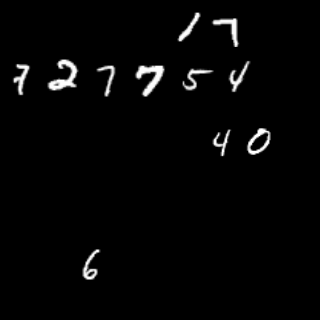 17
727754
40
6